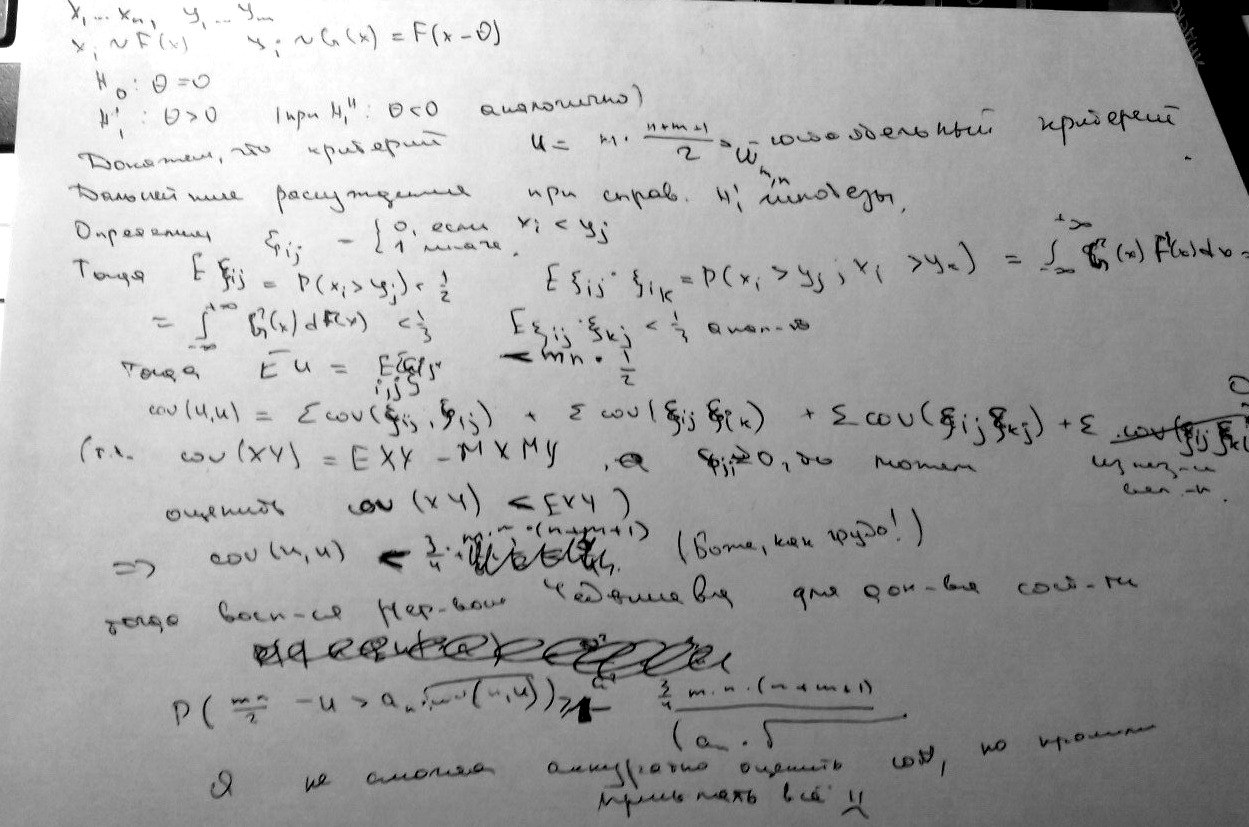 x₁...xₙ, y₁...yₘ
xᵢ ~ F(x) yᵢ ~ G(x) = F(x-θ)
H₀: θ=0
H₁': θ>0 (при H₁'': θ<0 аналогично)
Докажем, что критерий u = n · (n+m+1)/2 состоятельный критерий.
Дальнейшие рассуждения при справ. H₁' гипотезы.
Определим ξᵢⱼ = { 0, если xᵢ < yⱼ
1 иначе.
Тогда Eξᵢⱼ = P(xᵢ>yⱼ) < 1/2 Eξᵢⱼ·ξᵢₖ = P(xᵢ > yⱼ; xᵢ > yₖ) = ∫₋∞⁺∞ G²(x) F'(x)dx =
= ∫₋∞⁺∞ G²(x)dF(x) < 1/3 Eξᵢⱼ·ξₖⱼ < 1/3 анал-о
Тогда Eu = < mn · 1/2
cov(u,u) = Σcov(ξᵢⱼ, ξᵢⱼ) + Σcov(ξᵢⱼ ξᵢₖ) + Σcov(ξᵢⱼ ξₖⱼ) + Σ
(т.к. cov(XY) = EXY - MXMY, а ξᵢⱼ≥0, то можем из нез-и
оценить cov(XY) < EXY)
=> cov(u,u) < 3/4 · m·n·(n+m+1) (Боже, как грубо!)
тогда восп-ся нер-вом Чебышева для док-ва сост-ти
P( mn/2 - u > aₙ · √cov(u,u) ) ≥ 1 - 3/4 m·n·(n+m+1) / (aₙ · √
Я не смогла аккуратно оценить cov, но